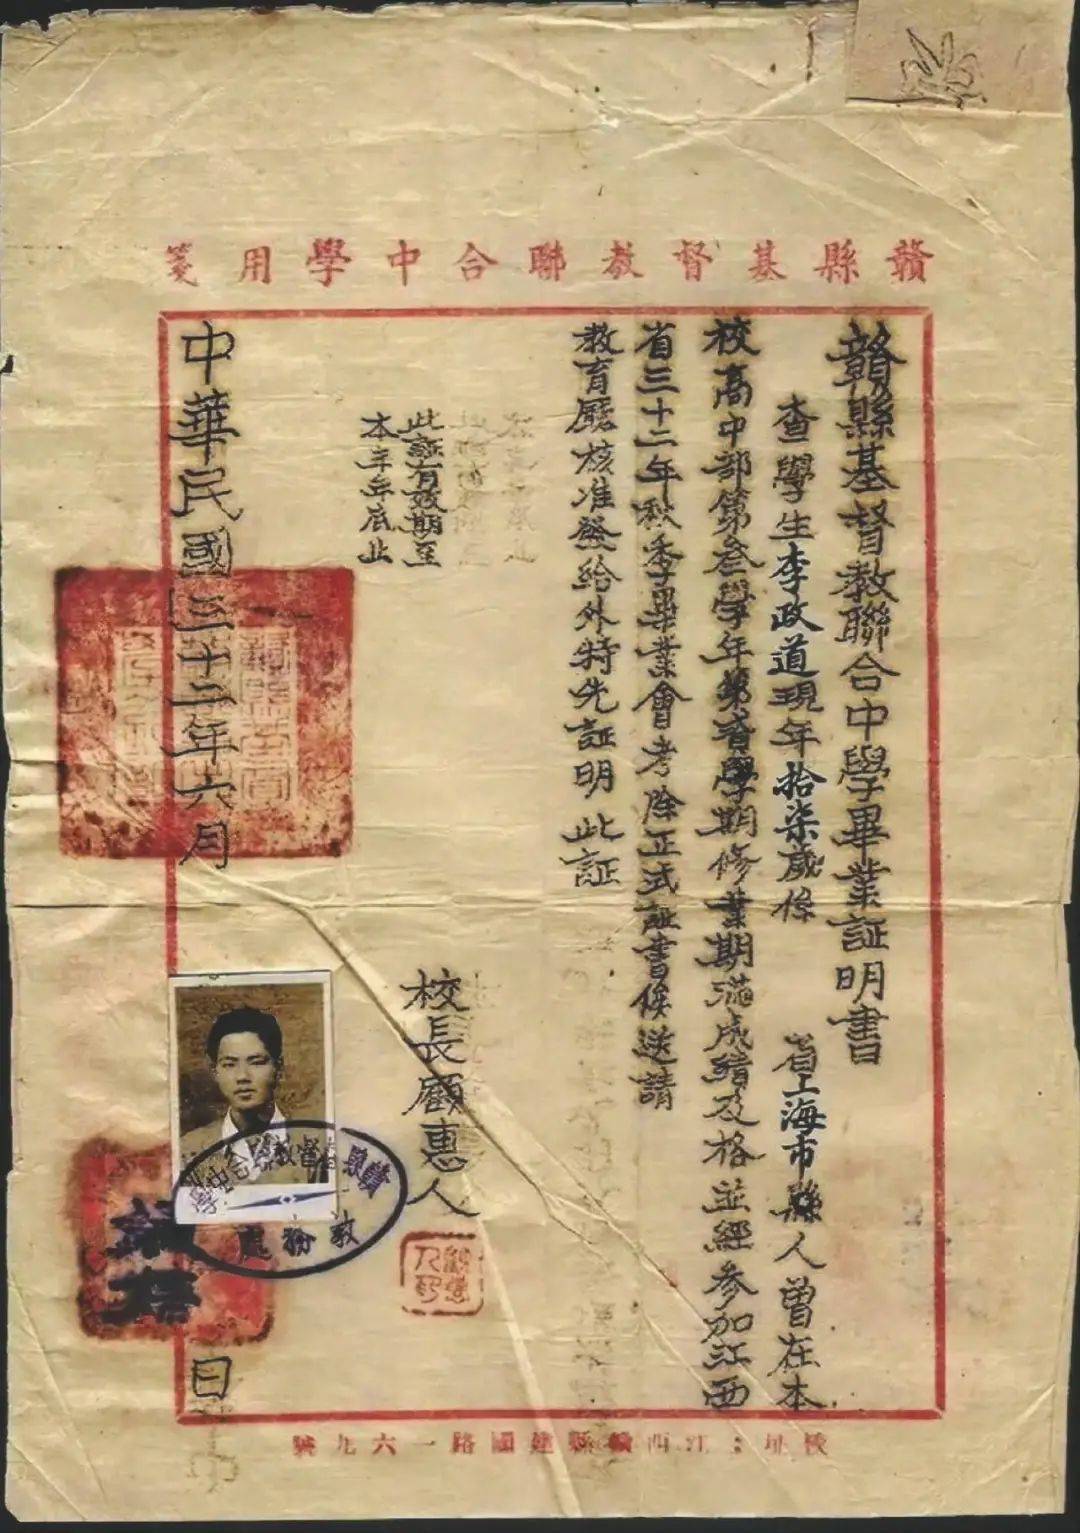 贛縣基督教聯合中學用箋
贛縣基督教聯合中學畢業証明書
查學生李政道現年拾柒歲係 省上海市縣人曾在本
校高中部第叁學年第貳學期修業期滿成績及格並經參加江西
省三十二年秋季畢業會考除正式証書俟送請
教育廳核准發給外特先証明 此証
此証有效期至
本年年底止
校長顧惠人
中華民國三十二年六月 日
教務處
校址：江西贛縣建國路一六九號